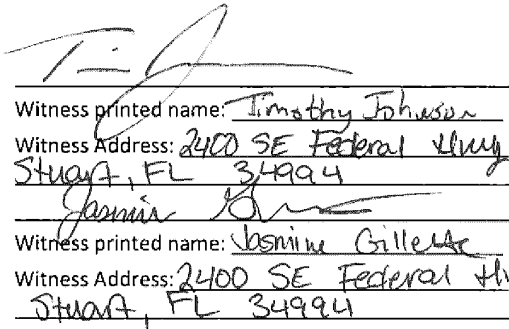 Witness printed name: Timothy Johnson
Witness Address: 2400 SE Federal Hwy
Stuart, FL 34994
Jasmin
Witness printed name: Jasmine Gillette
Witness Address: 2400 SE Federal H
Stuart, FL 34994